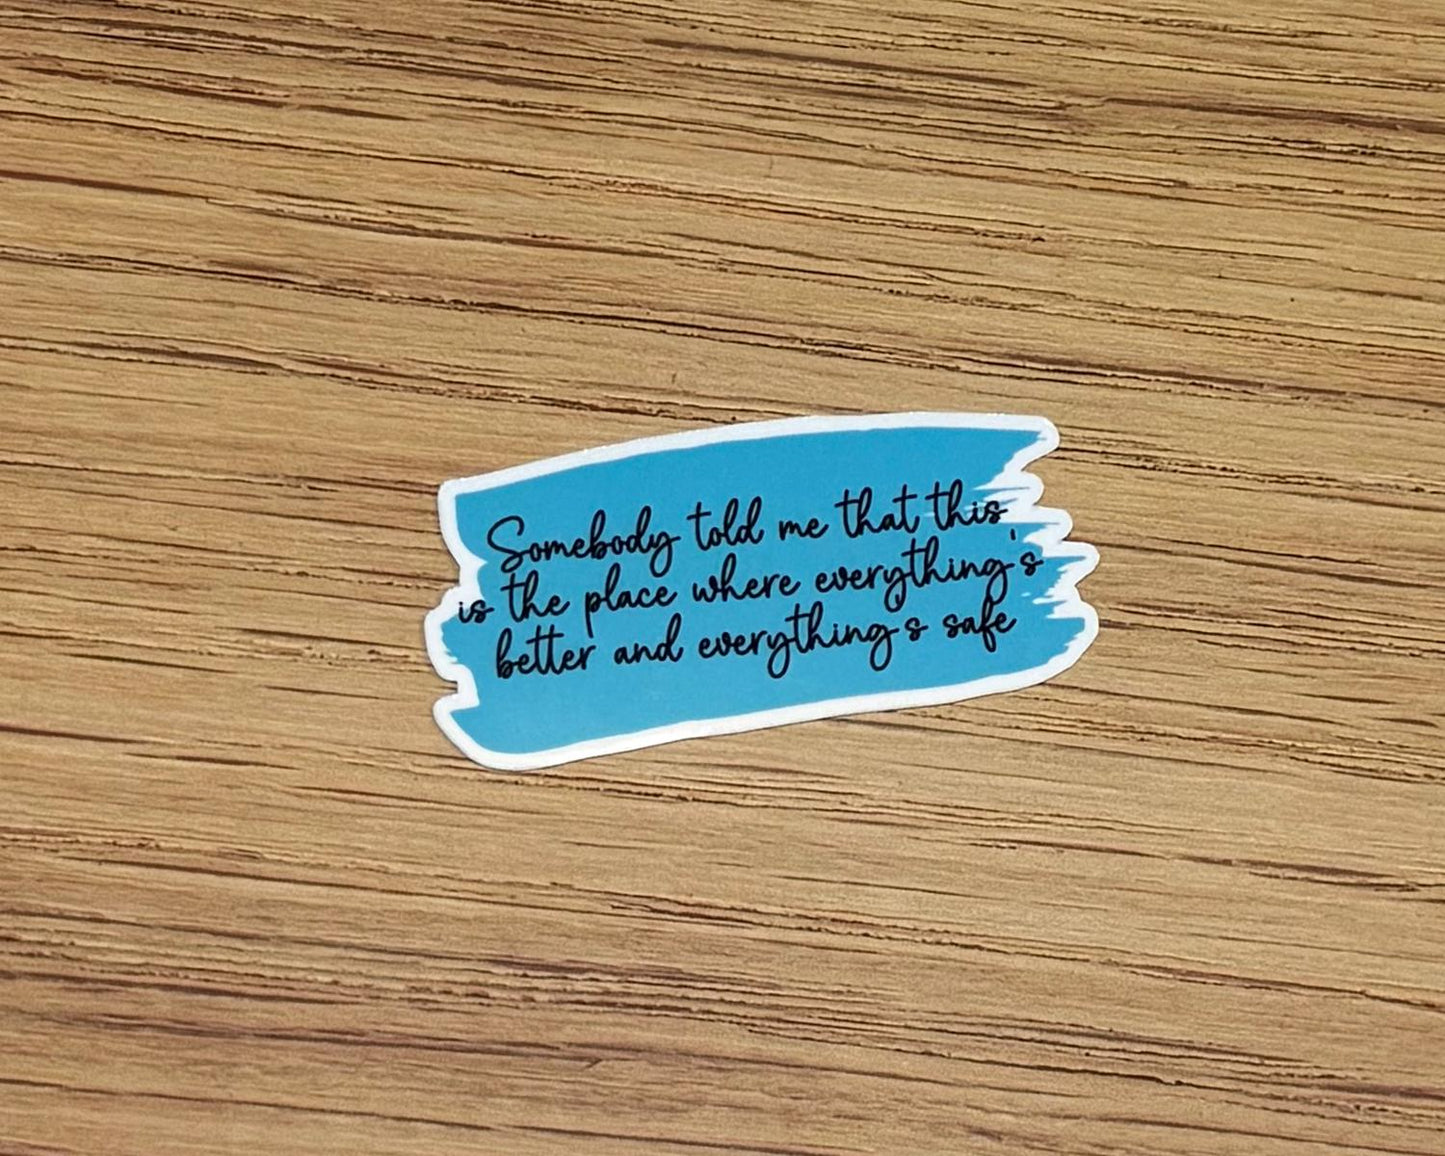 Somebody told me that this
is the place where everything's
better and everything's safe